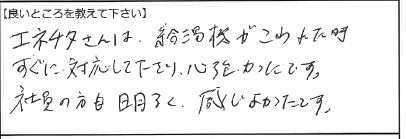 【良いところを教えて下さい】
エネチタさんは、給湯機がこわれた時
すぐに対応して下さり、心強かったです。
社員の方も明るく、感じよかったです。